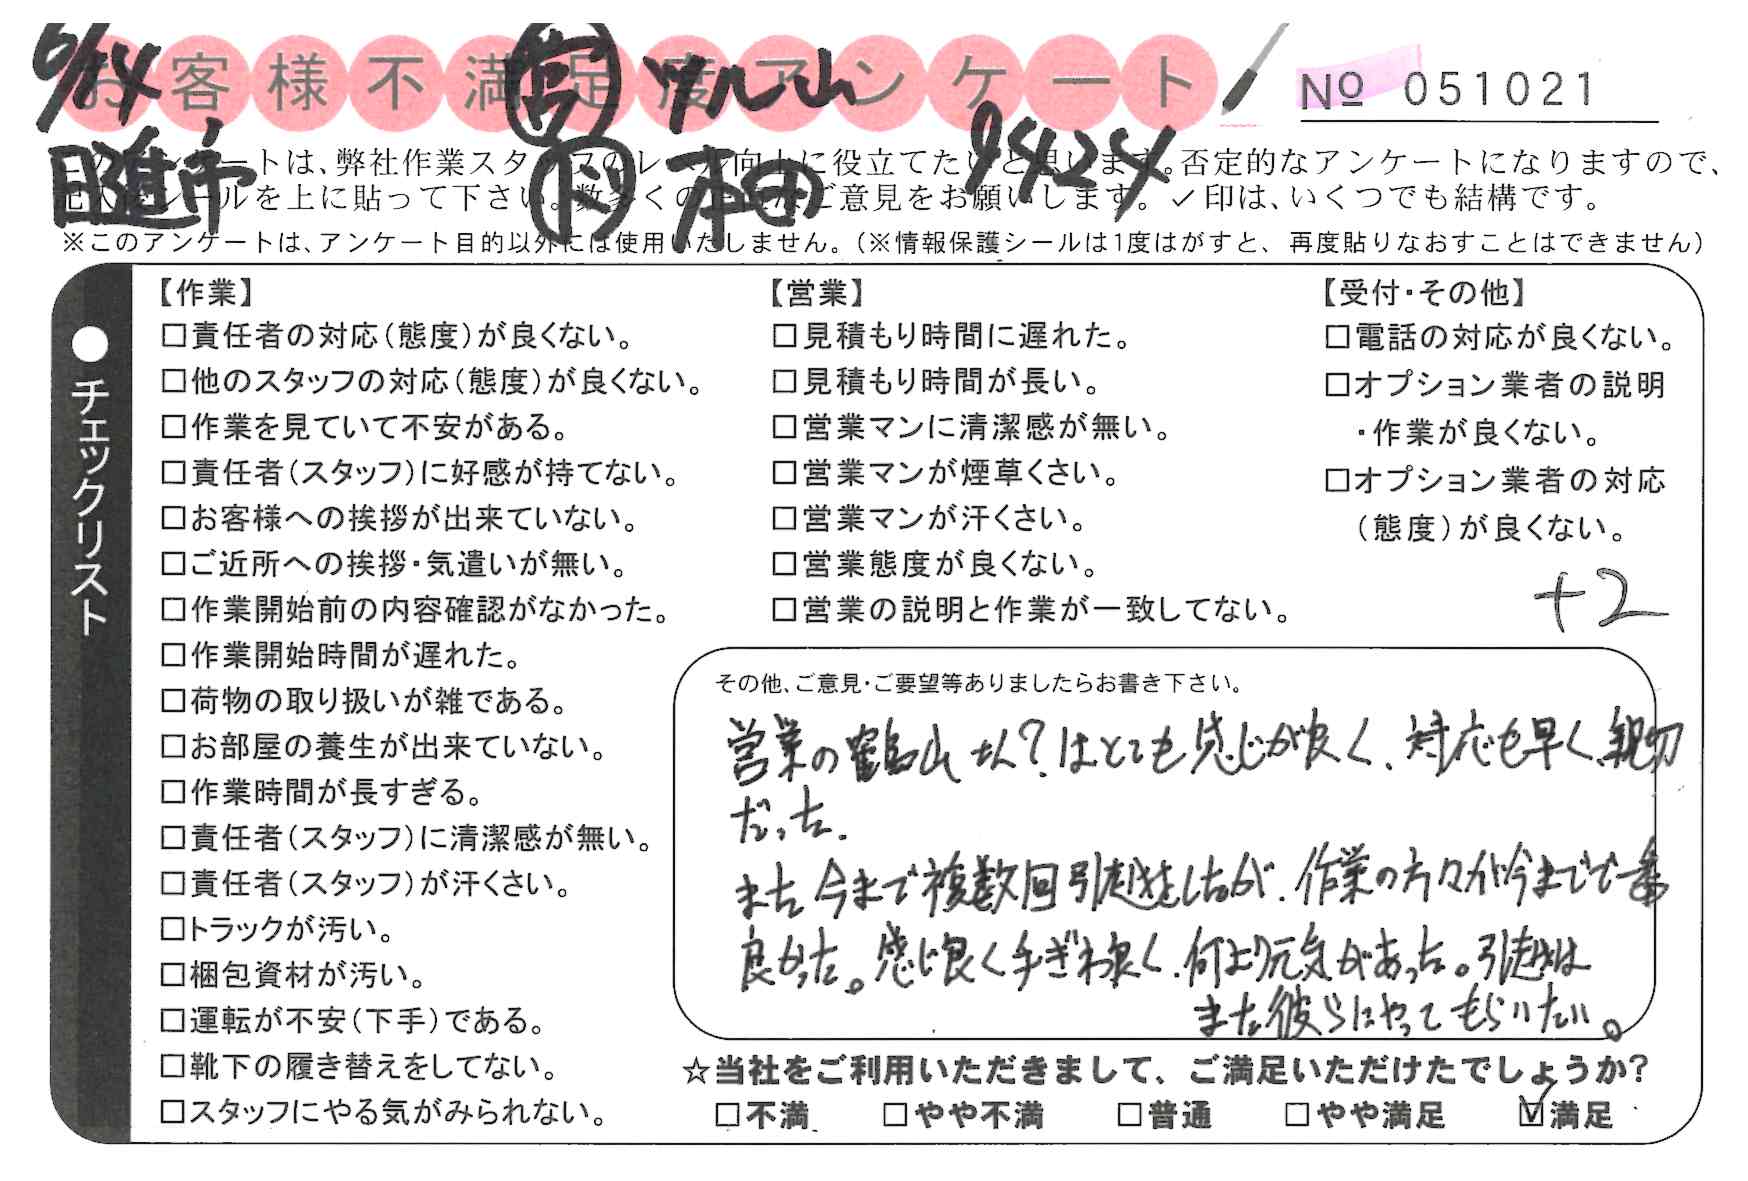 お客様不満足度アンケート
6/24 営 ツル山
日進市 ド 本田 95424
№ 051021
このアンケートは、弊社作業スタッフのレベル向上に役立てたいと思います。否定的なアンケートになりますので、
記入後シールを上に貼って下さい。数多くの正直なご意見をお願いします。✓印は、いくつでも結構です。
※このアンケートは、アンケート目的以外には使用いたしません。(※情報保護シールは1度はがすと、再度貼りなおすことはできません)
●チェックリスト
【作業】
□責任者の対応(態度)が良くない。
□他のスタッフの対応(態度)が良くない。
□作業を見ていて不安がある。
□責任者(スタッフ)に好感が持てない。
□お客様への挨拶が出来ていない。
□ご近所への挨拶・気遣いが無い。
□作業開始前の内容確認がなかった。
□作業開始時間が遅れた。
□荷物の取り扱いが雑である。
□お部屋の養生が出来ていない。
□作業時間が長すぎる。
□責任者(スタッフ)に清潔感が無い。
□責任者(スタッフ)が汗くさい。
□トラックが汚い。
□梱包資材が汚い。
□運転が不安(下手)である。
□靴下の履き替えをしてない。
□スタッフにやる気がみられない。
【営業】
□見積もり時間に遅れた。
□見積もり時間が長い。
□営業マンに清潔感が無い。
□営業マンが煙草くさい。
□営業マンが汗くさい。
□営業態度が良くない。
□営業の説明と作業が一致してない。
【受付・その他】
□電話の対応が良くない。
□オプション業者の説明
・作業が良くない。
□オプション業者の対応
(態度)が良くない。
+2
その他、ご意見・ご要望等ありましたらお書き下さい。
営業の鶴山さん?はとても感じが良く、対応も早く、親切
だった。
また今まで複数回引越をしたが、作業の方々が今までで一番
良かった。感じ良く手ぎわ良く、何より元気があった。引越は
また彼らにやってもらいたい。
☆当社をご利用いただきまして、ご満足いただけたでしょうか?
□不満 □やや不満 □普通 □やや満足 ☑満足